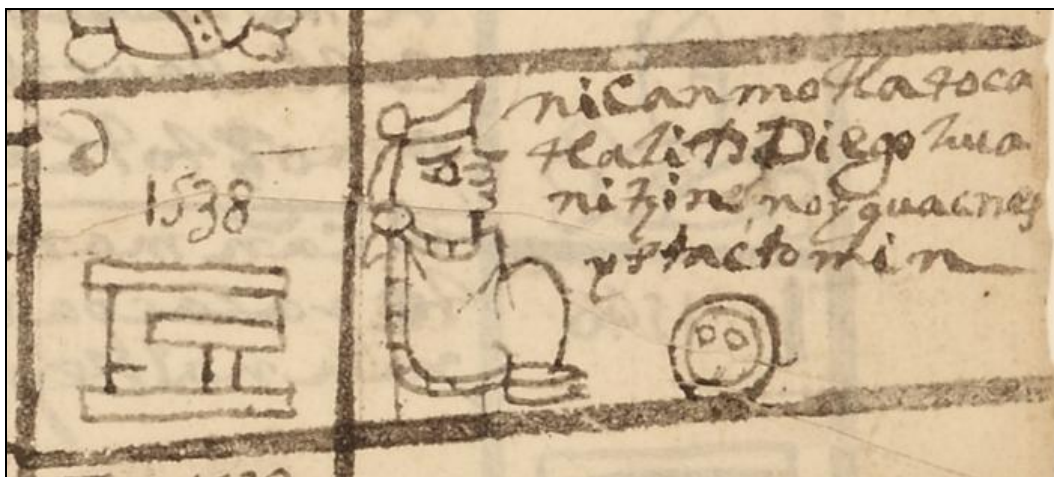 1538
nican motlatoca
tlali Dn Diego hua
nitzin no yquac nez
yztac tomin